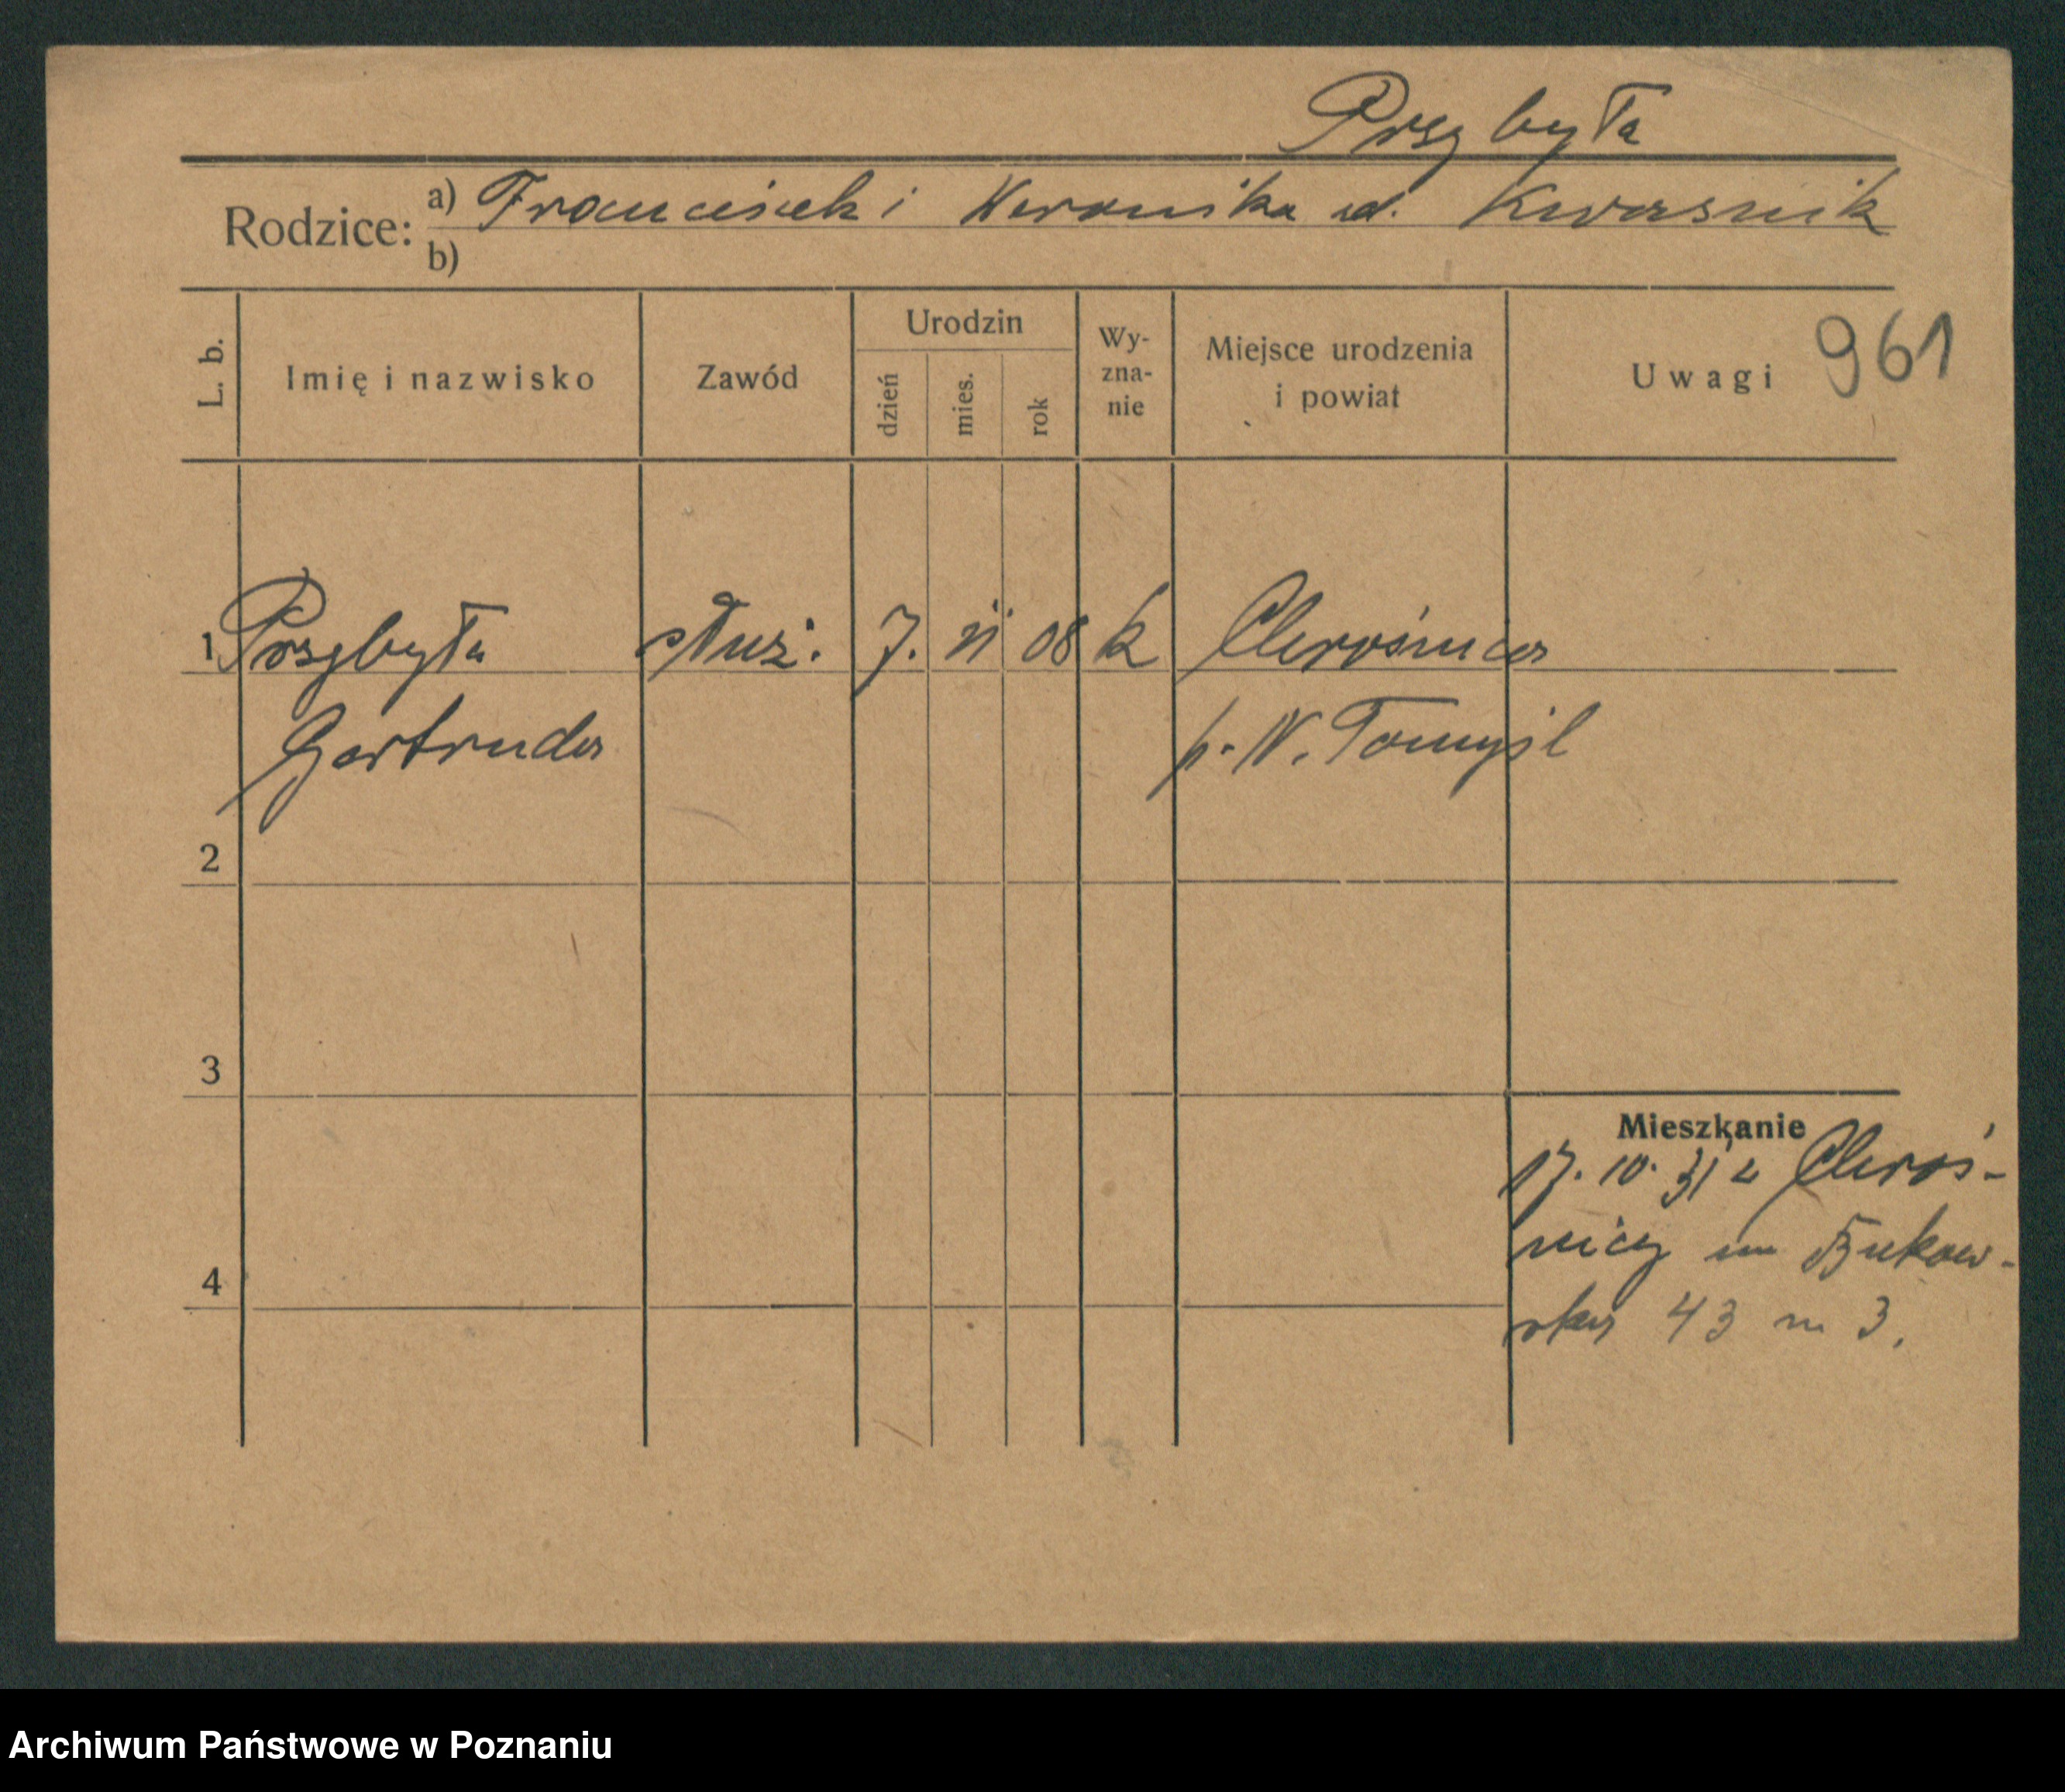 Przybyła
Rodzice: a) Franciszek i Weronika ud. Kwaśnik
b)
L. b. Imię i nazwisko Zawód Urodzin dzień mies. rok Wy-zna-nie Miejsce urodzenia i powiat Uwagi 961
1 Przybyła służ. 7. VI 08 k Chrośnica
Gertruda p. N. Tomyśl
2
3
Mieszkanie
17. 10. 31 z Chroś-
nicy na Bukow-
4
ska 43 m 3.
Archiwum Państwowe w Poznaniu